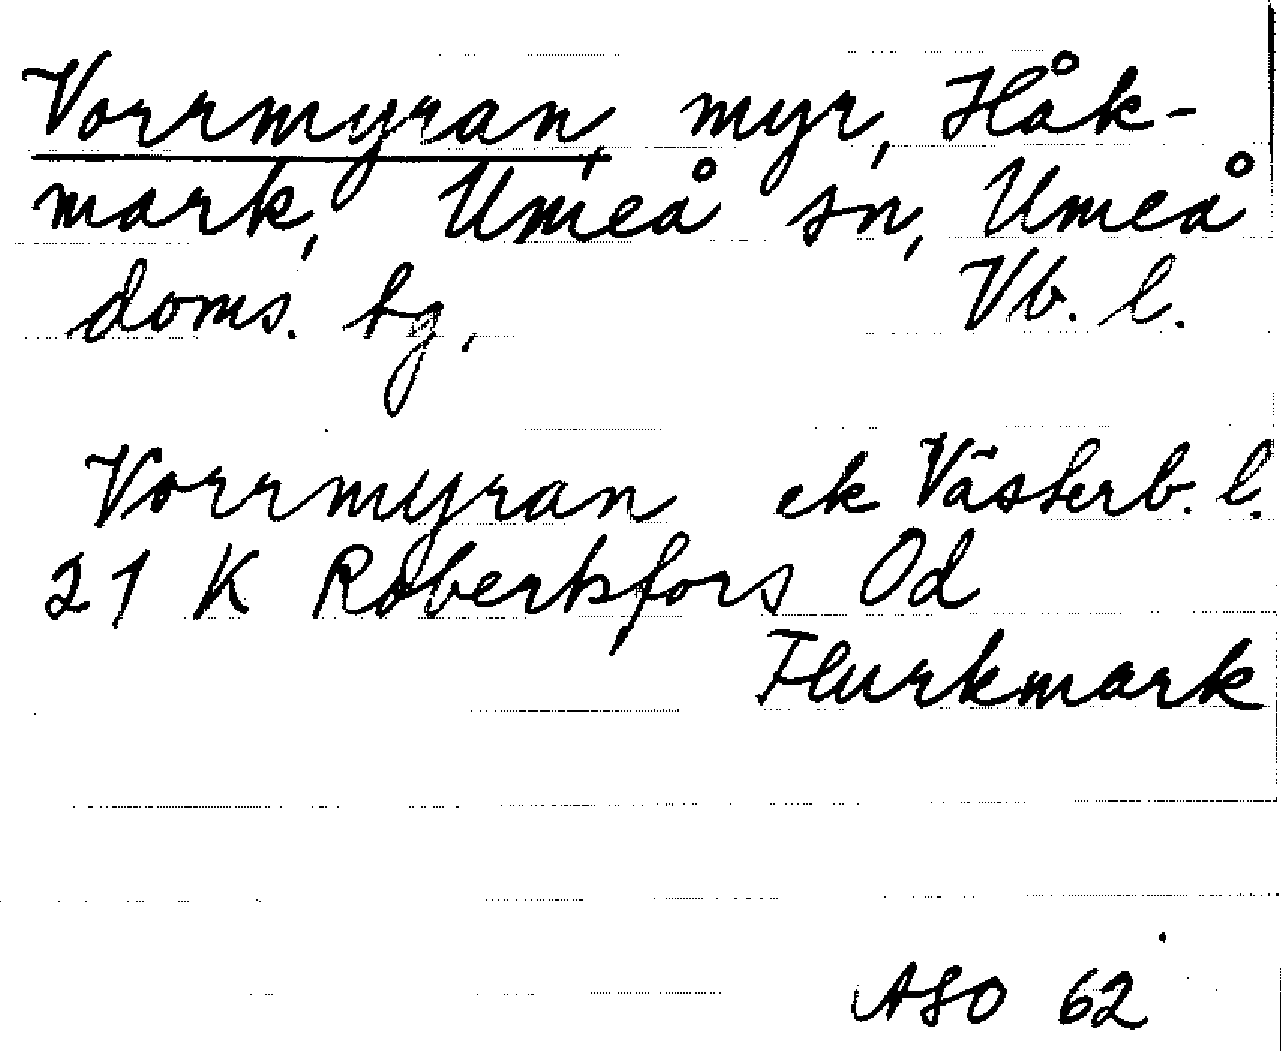 Vorrmyran, myr, Håk-
mark, Umeå sn, Umeå
doms. tg, Vb. l.
Vorrmyran ek Västerb. l.
21 K Robertsfors Od
Flurkmark
ASO 62